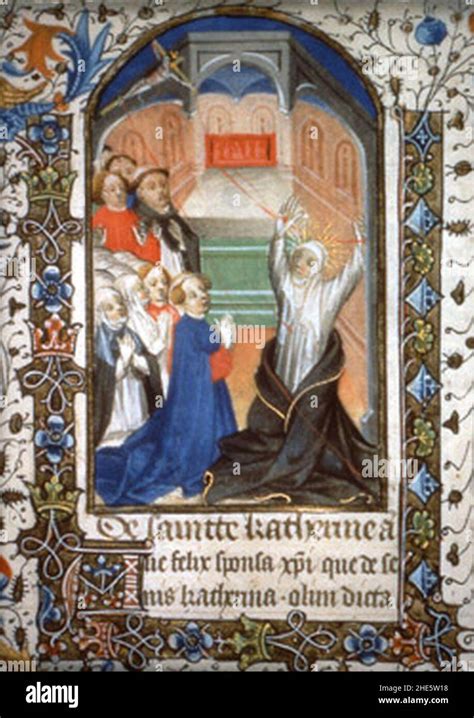 De saincte katherine a
Aue felix sponsa xpi que de se
nis katherina · olim dicta
alamy
Image ID: 2HE5W18
www.alamy.com